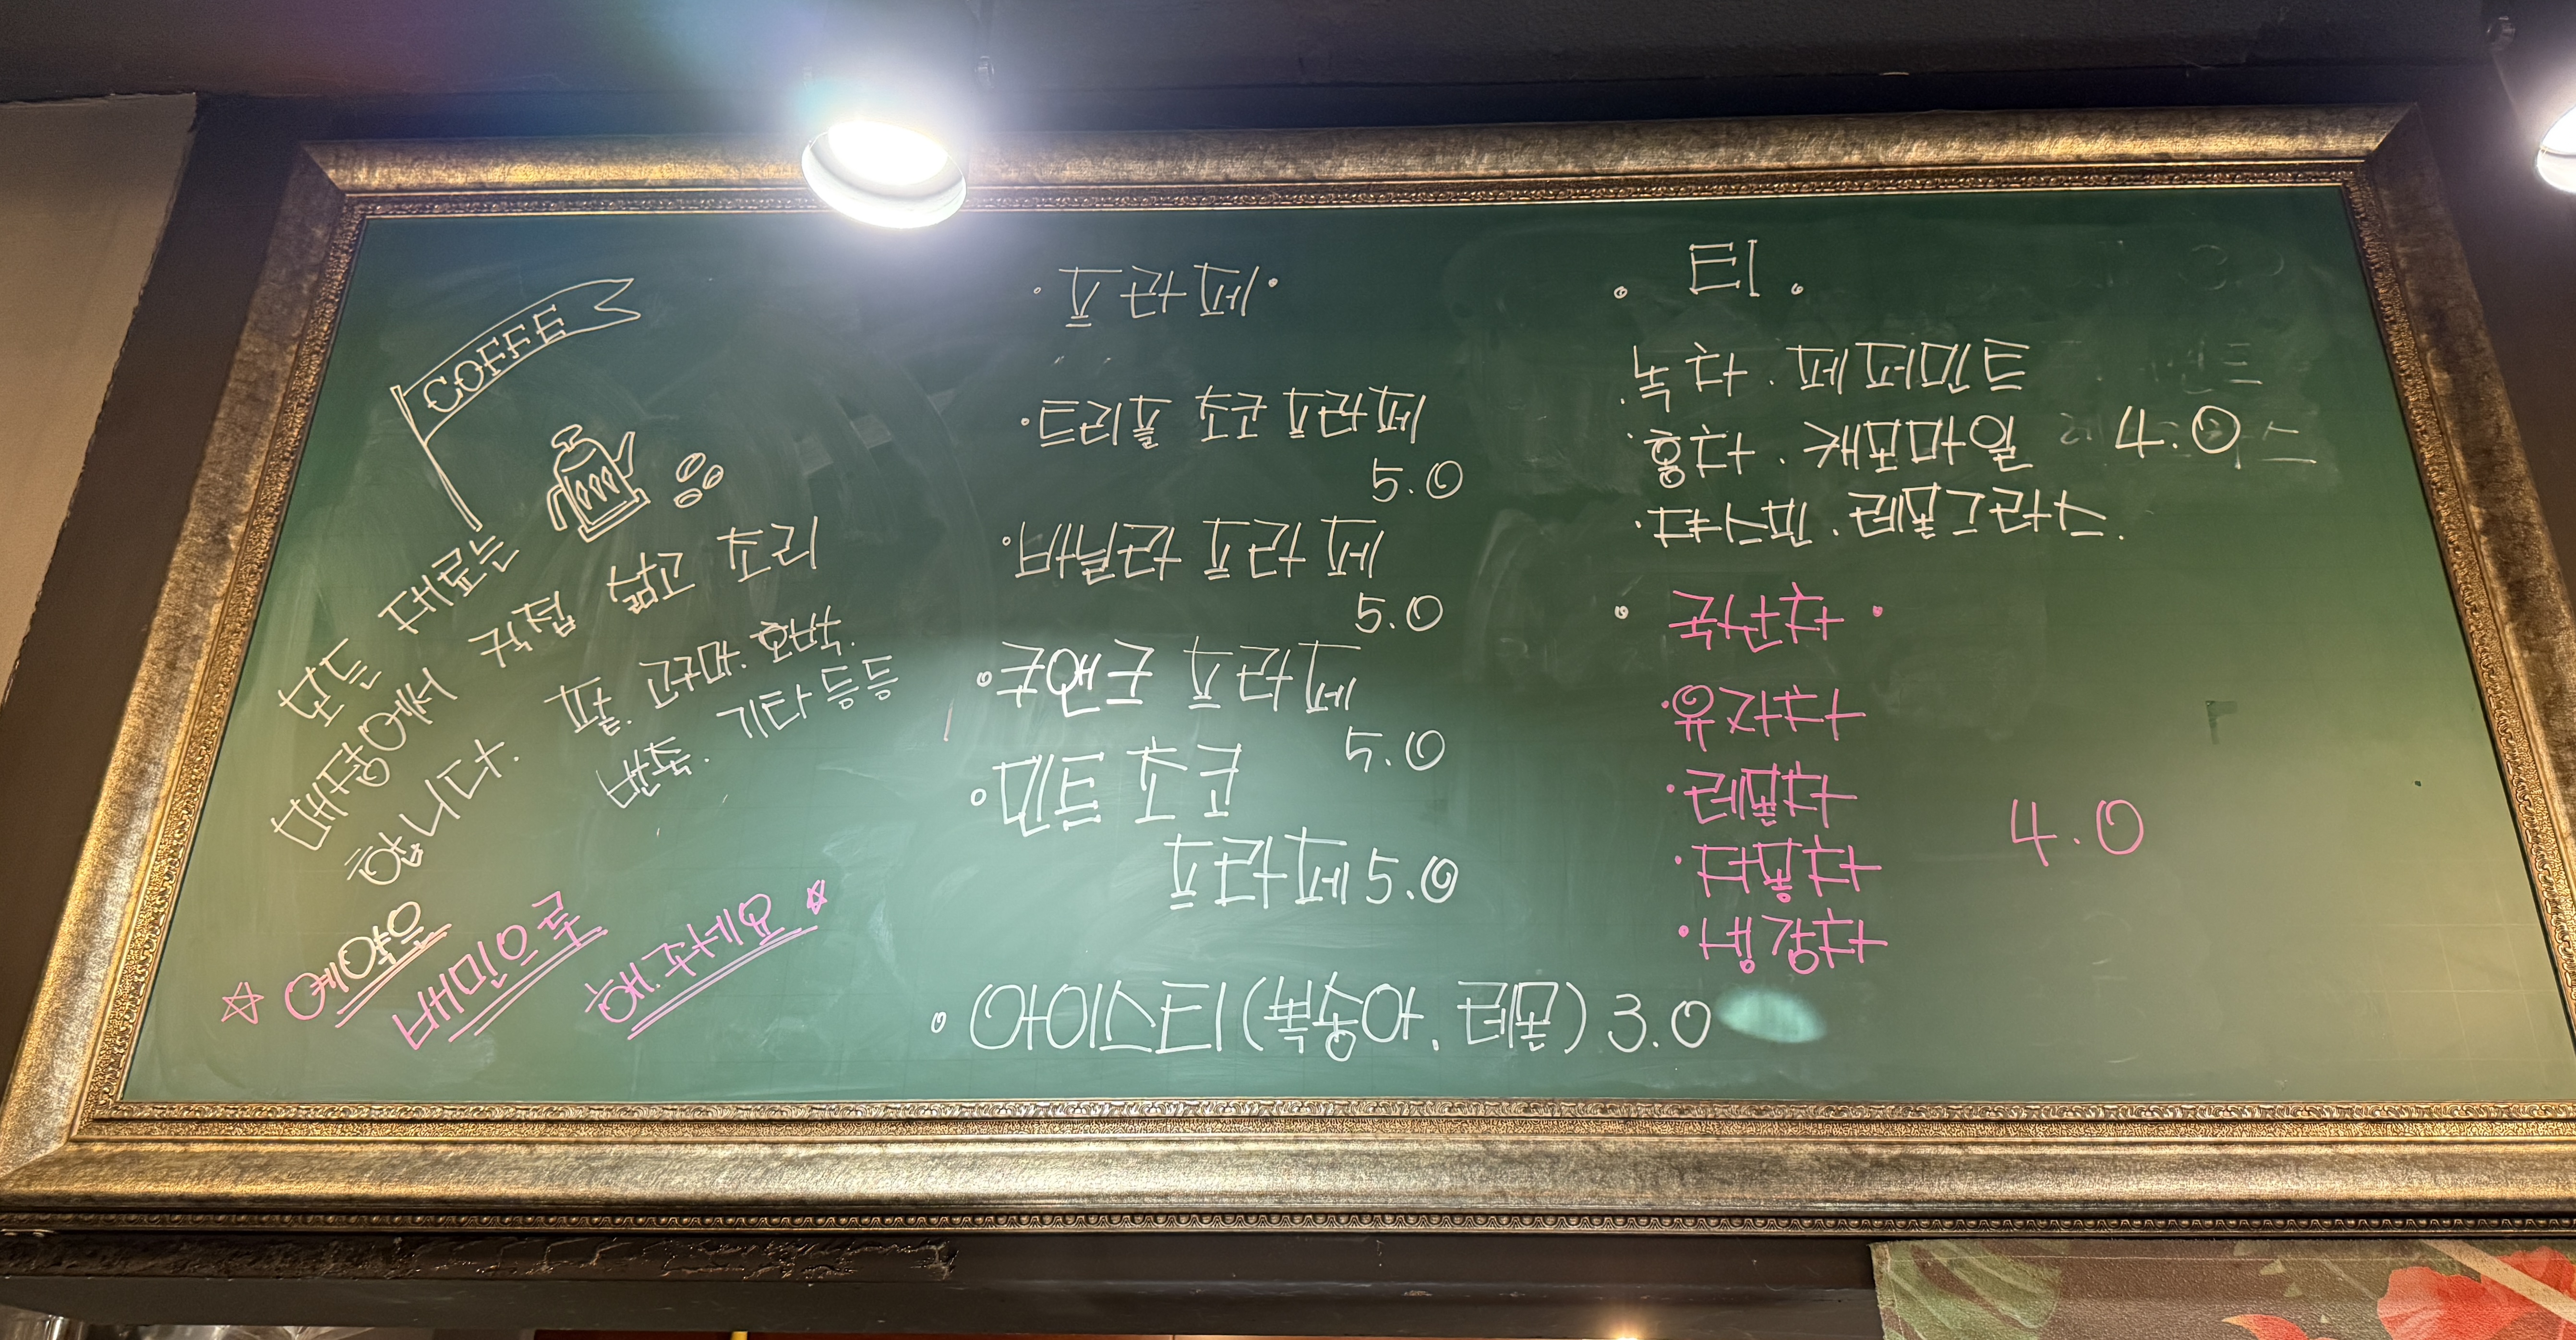 COFFEE
모든 재료는
매장에서 직접 삶고 조리
합니다. 팥. 고구마. 호박.
밤. 죽. 기타 등등
☆ 예약은
배민으로
해.주세요 ☆
· 프라페 ·
· 트리플 초코 프라페
5.0
· 바닐라 프라페
5.0
· 쿠앤크 프라페
5.0
· 민트 초코
프라페 5.0
· 아이스티(복숭아. 레몬) 3.0
· 티 ·
· 녹차. 페퍼민트
· 홍차. 캐모마일 4.0
· 쟈스민. 레몬그라스.
· 국산차 ·
· 유자차
· 레몬차
· 자몽차 4.0
· 생강차